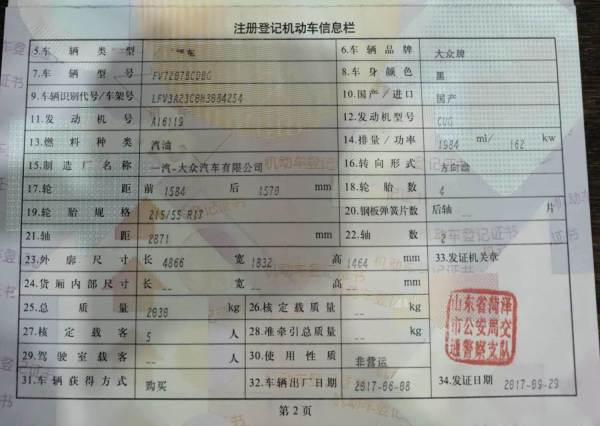 注册登记机动车信息栏
5.车辆类型 轿车 6.车辆品牌 大众牌
7.车辆型号 FV7207BCDBG 8.车身颜色 黑
9.车辆识别代号/车架号 LFV3A23C8H3084254 10.国产/进口 国产
11.发动机号 X16119 12.发动机型号 CUG
13.燃料种类 汽油 14.排量/功率 1984 ml/ 162 kw
15.制造厂名称 一汽-大众汽车有限公司 16.转向形式 方向盘
17.轮距 前 1584 后 1570 mm 18.轮胎数 4
19.轮胎规格 215/55 R17 20.钢板弹簧片数 后轴 -- 片
21.轴距 2871 mm 22.轴数 2
23.外廓尺寸 长 4866 宽 1832 高 1464 mm 33.发证机关章
24.货厢内部尺寸 长 -- 宽 -- 高 -- mm
25.总质量 2030 kg 26.核定载质量 -- kg
27.核定载客 5 人 28.准牵引总质量 -- kg
山东省菏泽
市公安局交
通警察支队
29.驾驶室载客 -- 人 30.使用性质 非营运
31.车辆获得方式 购买 32.车辆出厂日期 2017-06-08 34.发证日期 2017-09-29
第2页